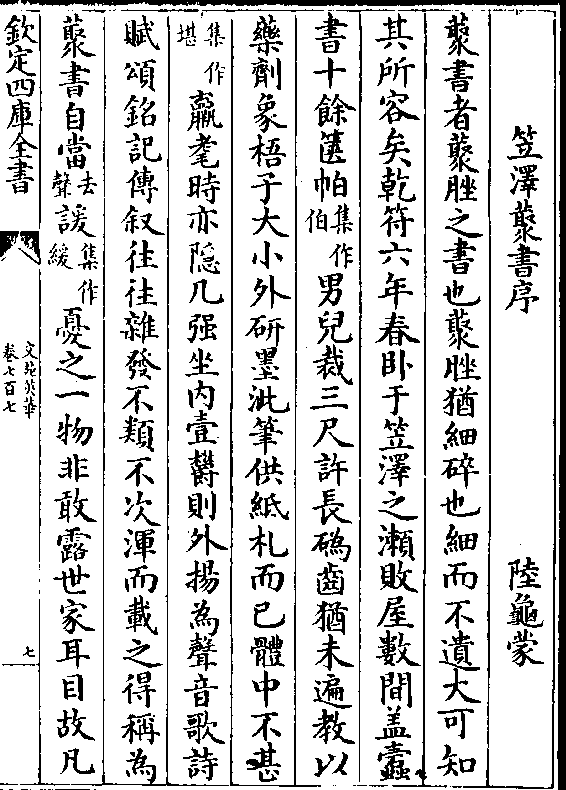 笠澤藂書序　陸龜蒙
藂書者藂脞之書也藂脞猶細碎也細而不遺大可知
其所容矣乾符六年春卧于笠澤之瀬敗屋數間盖蠧
書十餘篋帕集作伯男兒裁三尺許長碼齒猶未遍教以
藥劑象梧子大小外研墨泚筆供紙札而已體中不甚
集作堪羸耄時亦隠几强坐内壹欝則外揚為聲音歌詩
賦頌銘記傳叙往往雜發不類不次渾而載之得稱為
藂書自當去聲諼集作緩憂之一物非敢露世家耳目故凡
欽定四庫全書
文苑英華
卷七百七
七